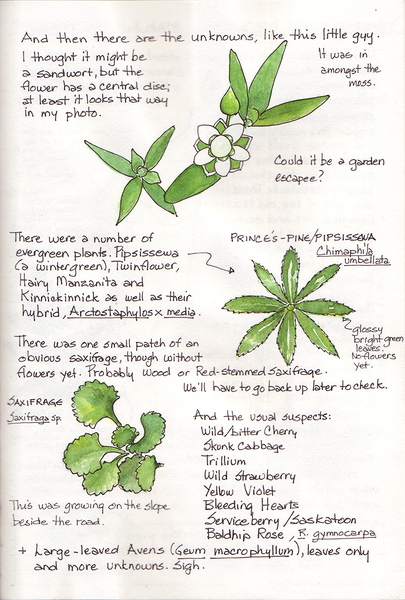 And then there are the unknowns, like this little guy.
I thought it might be
a sandwort, but the
flower has a central disc;
at least it looks that way
in my photo.
It was in
amongst the
moss.
Could it be a garden
escapee?
There were a number of
evergreen plants. Pipsissewa
(a wintergreen), Twinflower,
Hairy Manzanita and
Kinnickinnick as well as their
hybrid, Arctostaphylos x media.
PRINCE'S-PINE/PIPSISSEWA
Chimaphila
umbellata
glossy
bright green
leaves.
No flowers
yet.
There was one small patch of an
obvious saxifrage, though without
flowers yet. Probably Wood or Red-stemmed Saxifrage.
We'll have to go back up later to check.
SAXIFRAGE
Saxifraga sp.
This was growing on the slope
beside the road.
And the usual suspects:
Wild/bitter Cherry
Skunk Cabbage
Trillium
Wild Strawberry
Yellow Violet
Bleeding Hearts
Serviceberry/Saskatoon
Baldhip Rose, R. gymnocarpa
+ Large-leaved Avens (Geum macrophyllum), leaves only
and more unknowns. Sigh.